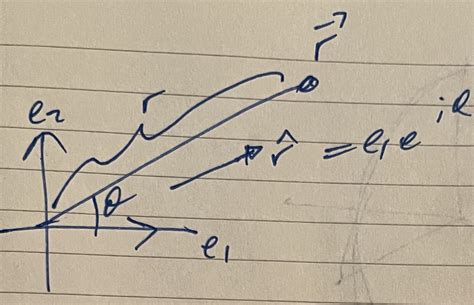 r⃗
e₂
r
r̂ = e₁ e^{iθ}
θ
e₁